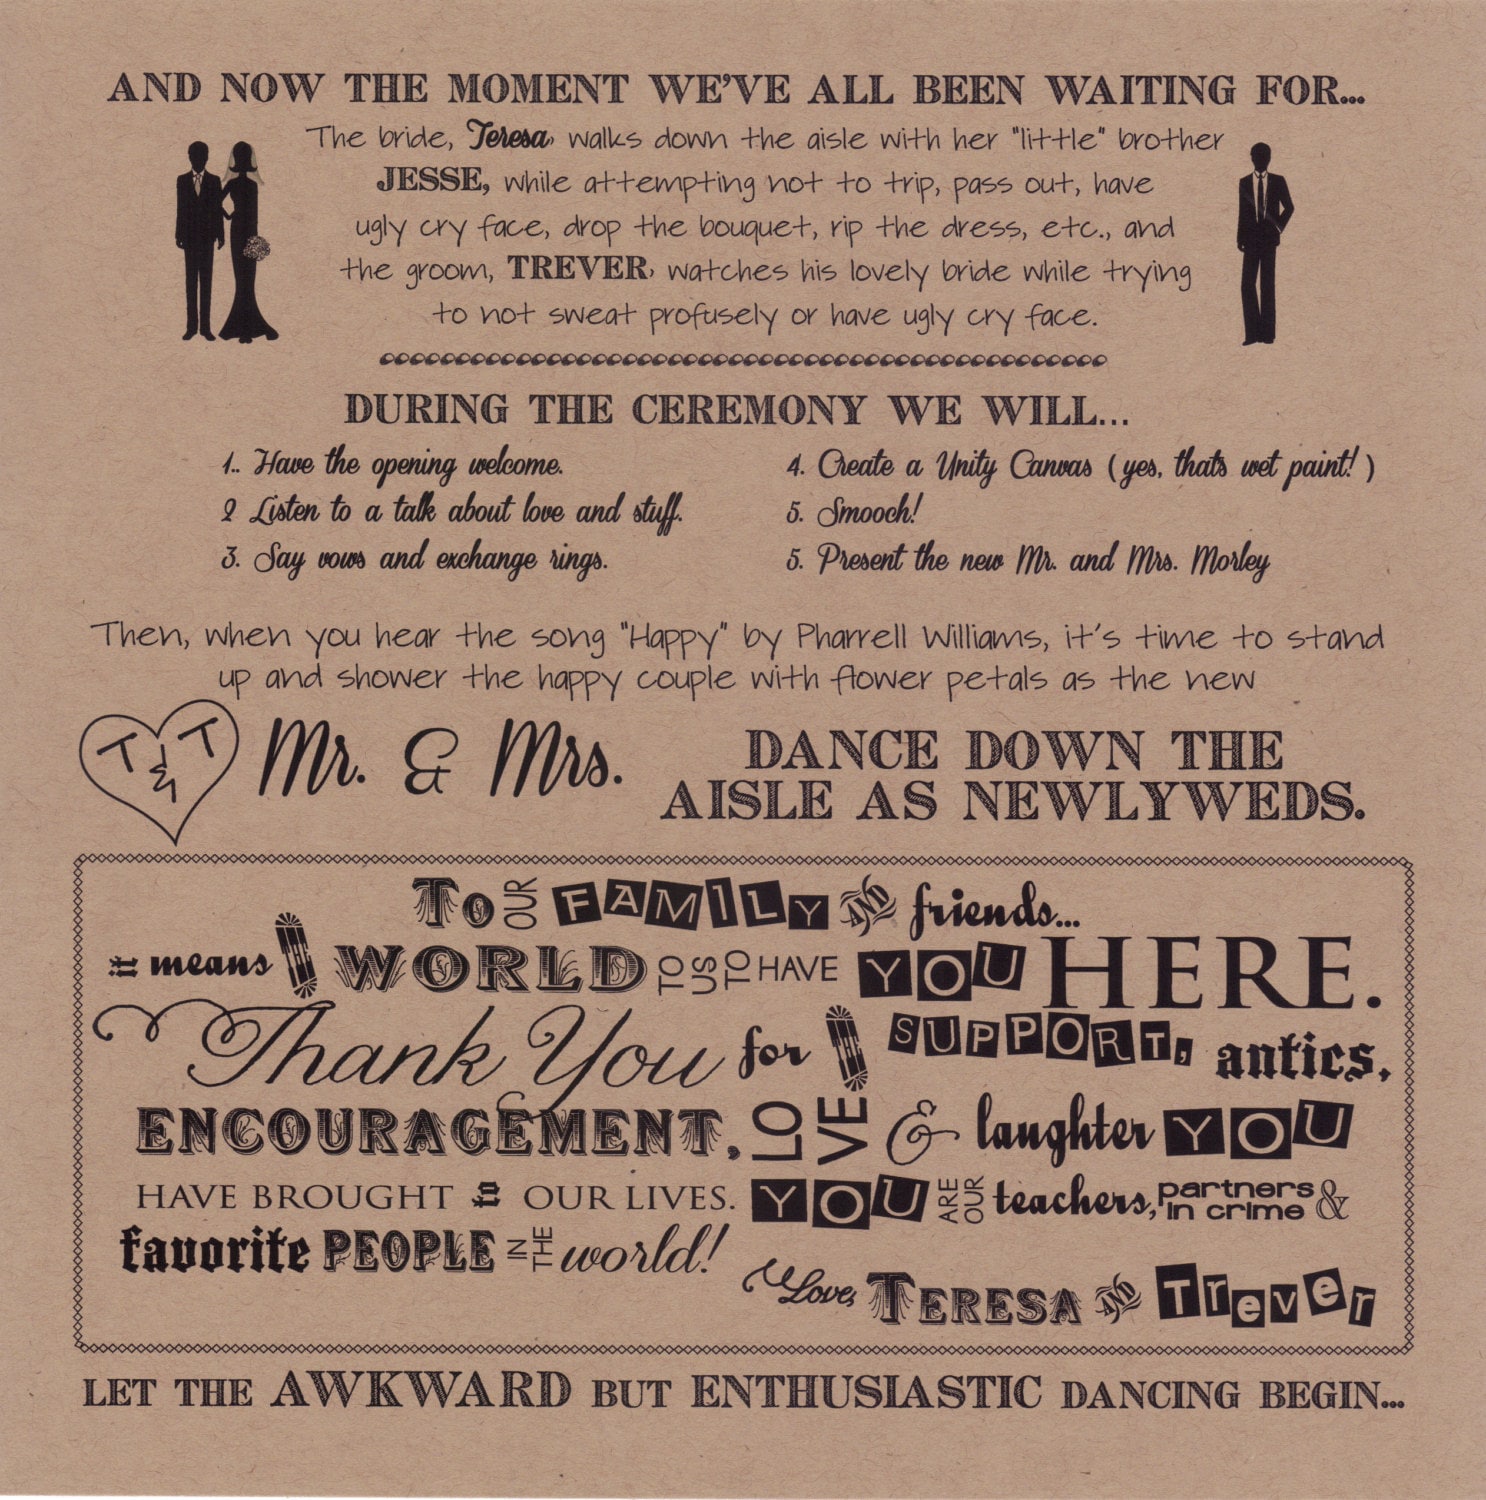 AND NOW THE MOMENT WE'VE ALL BEEN WAITING FOR...
The bride, Teresa, walks down the aisle with her "little" brother
JESSE, while attempting not to trip, pass out, have
ugly cry face, drop the bouquet, rip the dress, etc., and
the groom, TREVER, watches his lovely bride while trying
to not sweat profusely or have ugly cry face.
DURING THE CEREMONY WE WILL...
1.. Have the opening welcome.
2 Listen to a talk about love and stuff.
3. Say vows and exchange rings.
4. Create a Unity Canvas (yes, thats wet paint! )
5. Smooch!
5. Present the new Mr. and Mrs. Morley
Then, when you hear the song "Happy" by Pharrell Williams, it's time to stand
up and shower the happy couple with flower petals as the new
T & T Mr. & Mrs. DANCE DOWN THE
AISLE AS NEWLYWEDS.
To OUR FAMILY AND friends...
it means the WORLD TO US TO HAVE YOU HERE.
Thank You for the SUPPORT, antics,
ENCOURAGEMENT, LOVE & laughter YOU
HAVE BROUGHT to OUR LIVES. YOU ARE OUR teachers, partners in crime &
favorite PEOPLE IN THE world!
Love, TERESA AND Trever
LET THE AWKWARD BUT ENTHUSIASTIC DANCING BEGIN...